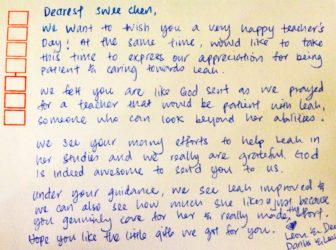 Dearest Swee Chen,
We want to wish you a very happy teacher's
Day! At the same time, would like to take
this time to express our appreciation for being
patient & caring towards Leah.
We felt you are like God sent as we prayed
for a teacher that would be patient with Leah,
someone who can look beyond her abilities.
We see your many efforts to help Leah in
her studies and we really are grateful. God
is indeed awesome to send you to us.
Under your guidance, we see Leah improved &
we can also see how much she likes just because
you genuinely care for her & really made effort.
Hope you like the little gifts we got for you.
Leon &